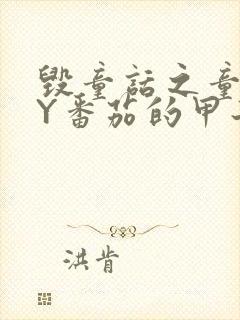 毁童话之童
Y番茄的甲
洪肯